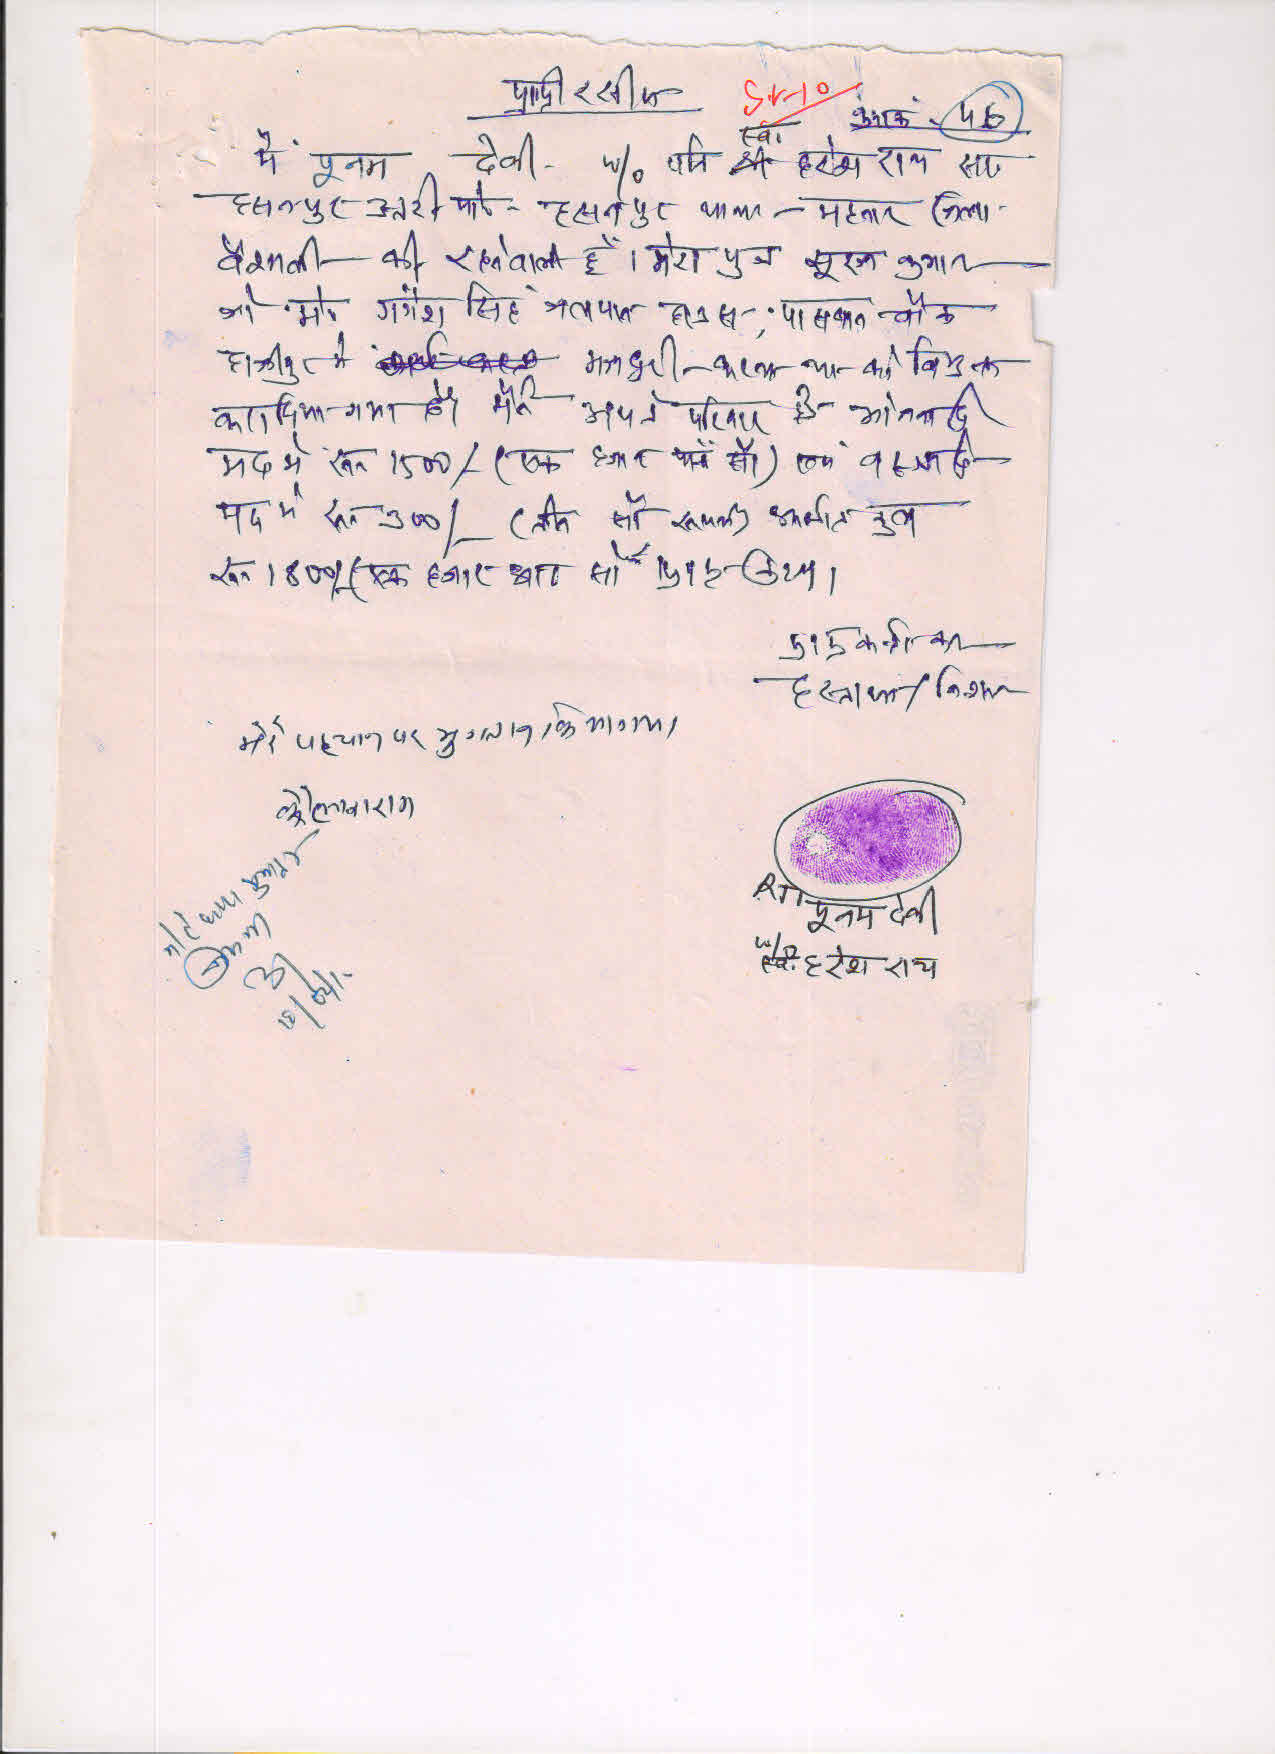 प्राप्ति रसीद
Sr-10
क्रमांक - 46
स्व०
मैं पूनम देवी - w/o पति श्री हरेश राय सा०
हसनपुर उतरी पो०- हसनपुर थाना - महनार जिला-
वैशाली की रहनेवाली हूँ। मेरा पुत्र सूरज कुमार
जो मो० गणेश सिंह जलपान हाउस, पासवान चौक
हाजीपुर में मजदूरी करता था को विमुक्त
करा दिया गया है। मैंने अपने परिवार के भोजनादि
मद में रू० 1500/- (एक हजार पाँच सौ) एवं वस्त्रादि
मद में रू० 300/- (तीन सौ रूपया) अर्थात कुल
रू० 1800/- (एक हजार आठ सौ प्राप्त किया।
प्राप्तकर्ता का
हस्ताक्षर/निशान
मेरे पहचान पर भुगतान किया गया।
कैलाश राम
RTI पूनम देवी
w/o
स्व. हरेश राय